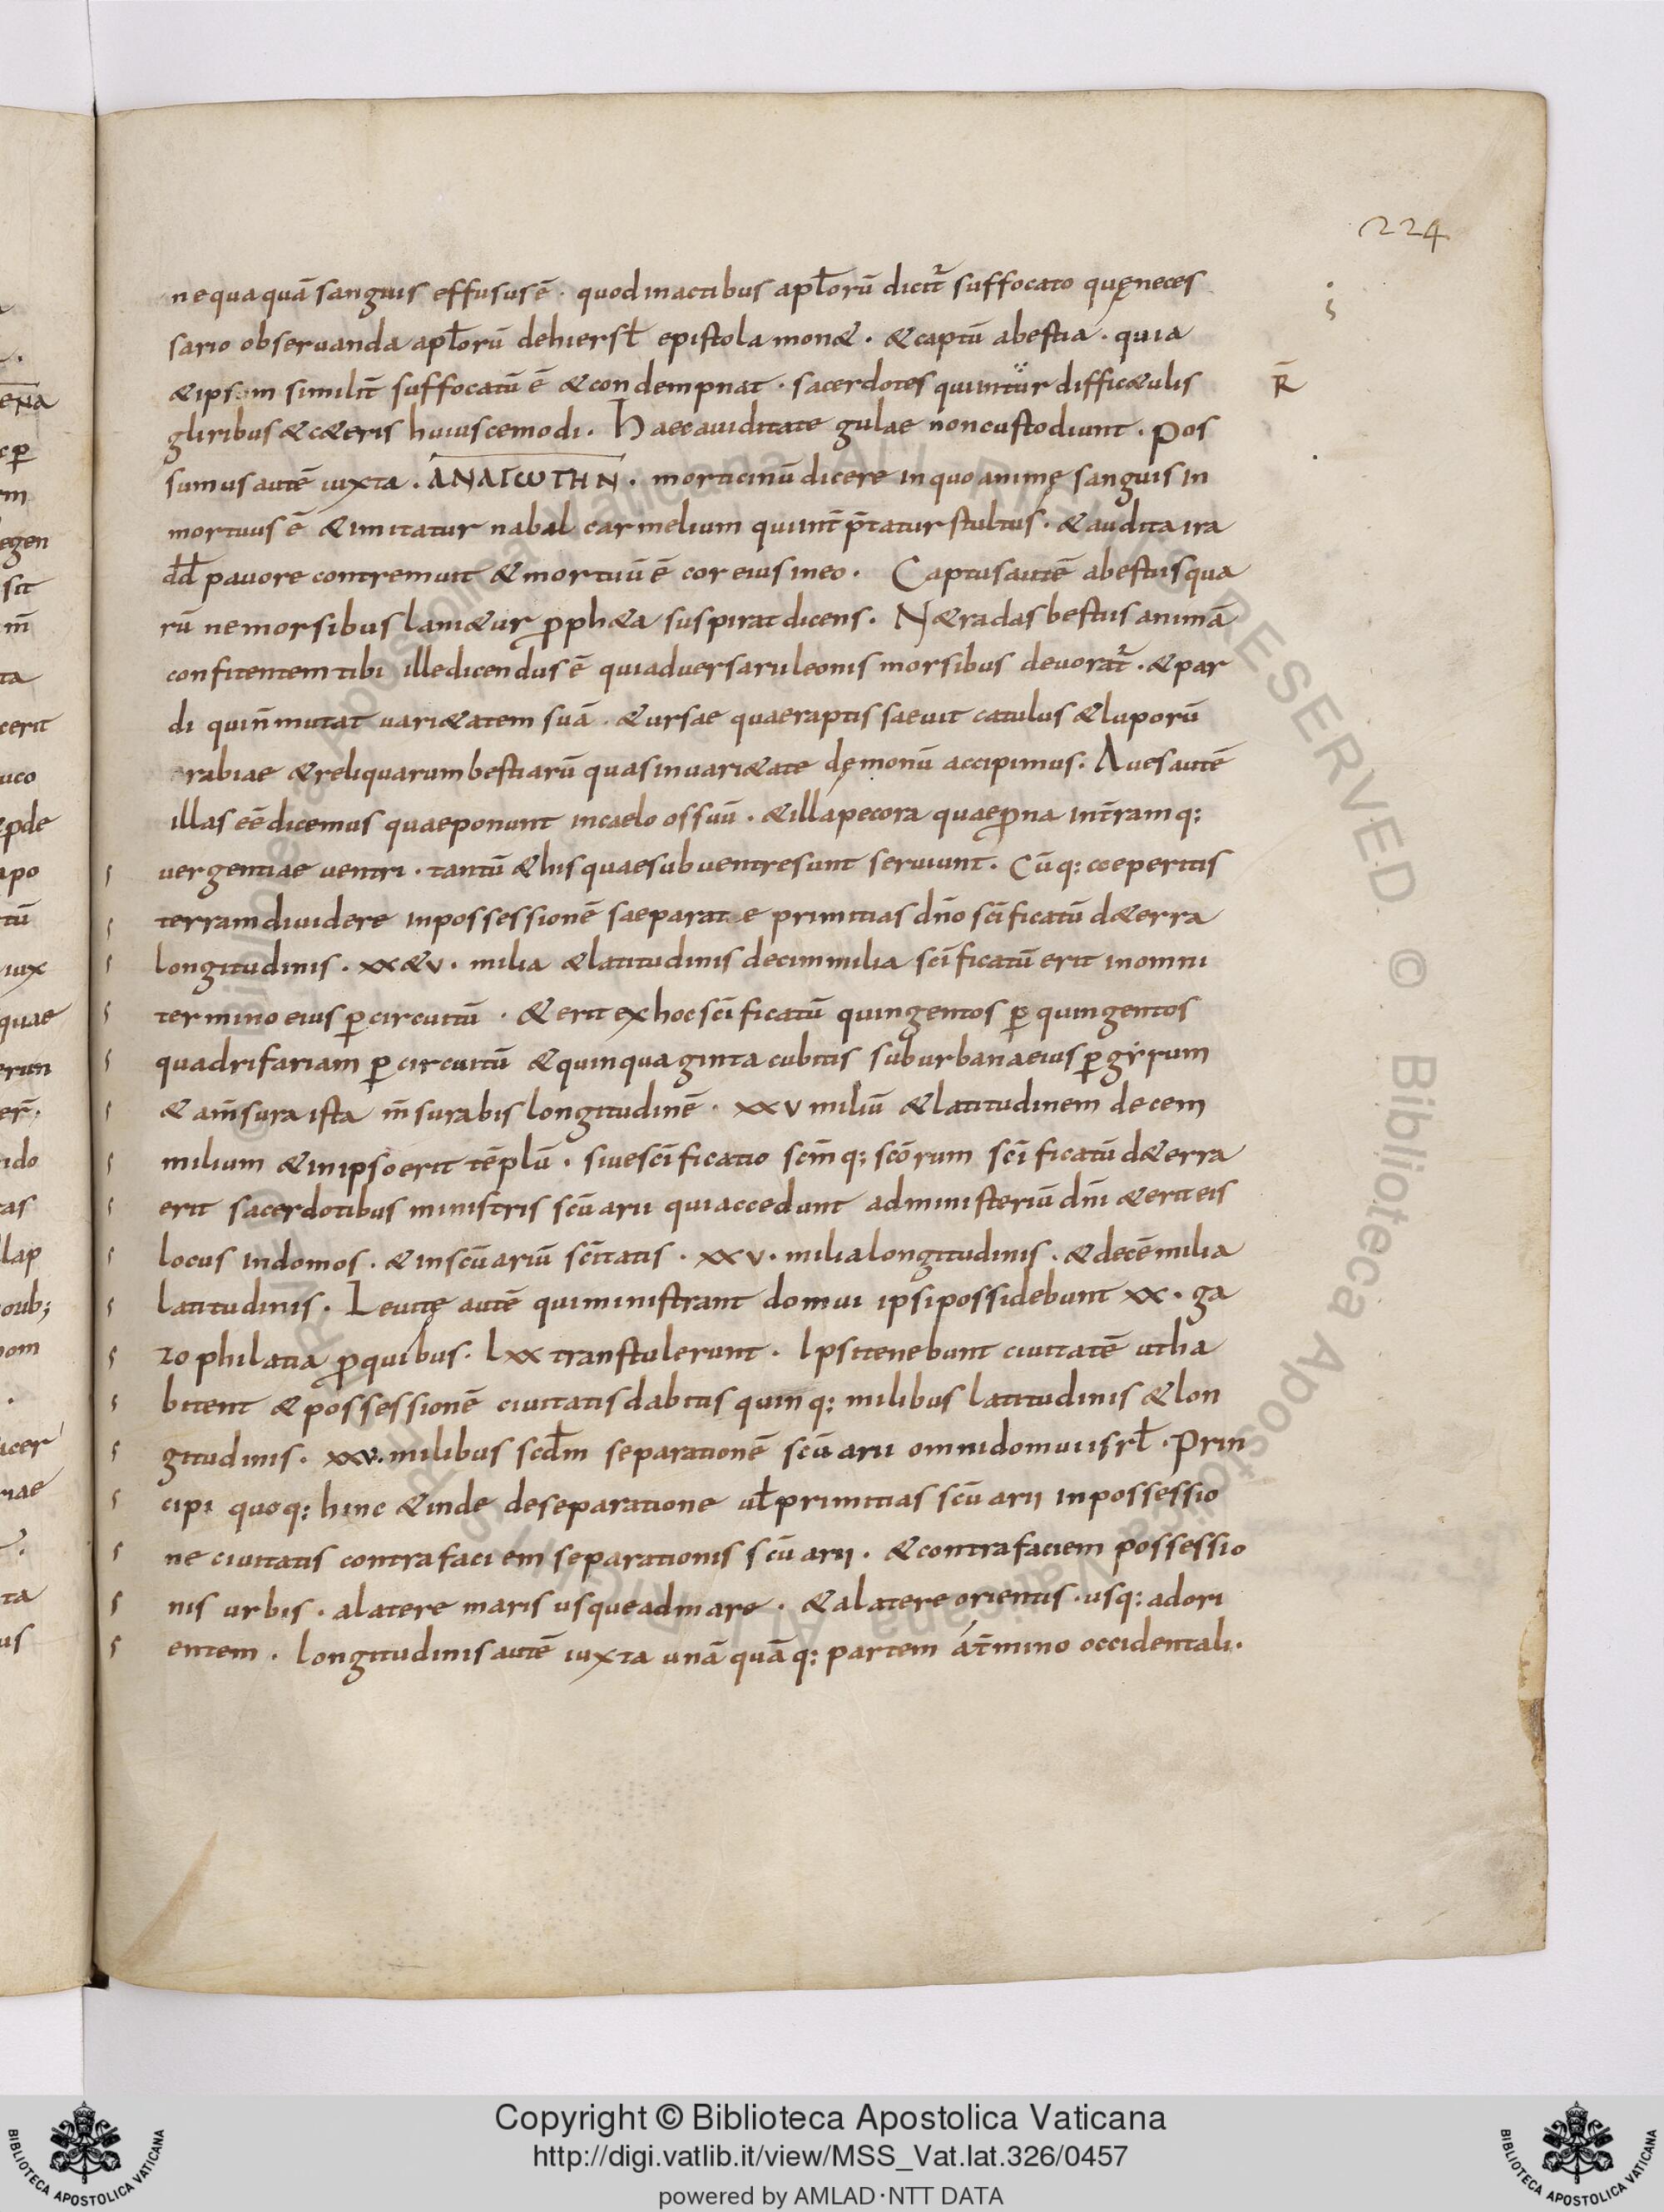 224
nequaquā sanguis effusus ē · quod in actibus apľorū dicit᷑ suffocato quę neces
sario observanda apľorū de hiersl̄ epistola mon& · & captū a bestia · quia
& ipsum similit̄ suffocatū ē & condempnat · sacerdotes qui in turdis fic&ulis
R̄
gliribus & c&eris huiuscemodi · Haec aviditate gulae non custodiunt · Pos
sumus autē iuxta · ΑΝΑΓωΓΗΝ · morticinū dicere in quo animę sanguis in
mortuus ē & imitatur nabal carmelium qui int̄p̄tatur stultus · & audita ira
dd̄ pavore contremuit & mortuū ē cor eius in eo · Captus autē a bestiis qua
rū ne morsibus lani&ur ꝓph&a suspirat dicens · Ne tradas bestiis animā
confitentem tibi ille dicendus ē qui adversarii leonis morsibus devorat᷑ · & par
di qui n̄ mutat vari&atem suā · & ursae quae raptis saevit catulus & luporū
rabiae & reliquarum bestiarū quas in vari&ate dęmonū accipimus · Aves autē
illas eē dicemus quae ponunt in caelo os suū · & illa pecora quae ꝓna in t̄ramq:
vergentiae ventri · tantū & his quae sub ventre sunt serviunt · Cūq: coeperitis
terram dividere in possessionē saeparate primitias dn̄o sc̄ificatū de terra
longitudinis · xx&v · milia & latitudinis decim milia sc̄ificatū erit in omni
termino eius ꝑ circuitū · & erit ex hoc sc̄ificatū quingentos ꝑ quingentos
quadrifariam ꝑ circuitū & quinquaginta cubitis suburbana eius ꝑ gyrum
& a m̄sura ista m̄surabis longitudinē · xxv miliū & latitudinem decem
milium & in ipso erit tēplū · sive sc̄ificatio sc̄mq; sc̄orum sc̄ificatū de terra
erit sacerdotibus ministris sc̄uarii qui accedunt ad ministeriū dn̄i & erit eis
locus in domos · & in sc̄uariū sc̄itatis · xxv · milia longitudinis · & decē milia
latitudinis · Levitę autē qui ministrant domui ipsi possidebunt xx · ga
zophilatia ꝓ quibus · lxx transtulerunt · Ipsi tenebunt civitatē ut ha
bitent & possessionē civitatis dabitis quinq: milibus latitudinis & lon
gitudinis · xxv · milibus scd̄m separationē sc̄uarii omni domui isrl̄ · Prin
cipi quoq: hinc & inde de separatione ul̄ primitias sc̄uarii in possessio
ne civitatis contra faciem separationis sc̄uarii · & contra faciem possessio
nis urbis · a latere maris usque ad mare · & a latere orientis · usq: ad ori
entem · longitudinis autē iuxta unāquāq: partem a t̄mino occidentali ·
Copyright © Biblioteca Apostolica Vaticana
http://digi.vatlib.it/view/MSS_Vat.lat.326/0457
powered by AMLAD·NTT DATA
BIBLIOTECA APOSTOLICA VATICANA
BIBLIOTECA APOSTOLICA VATICANA